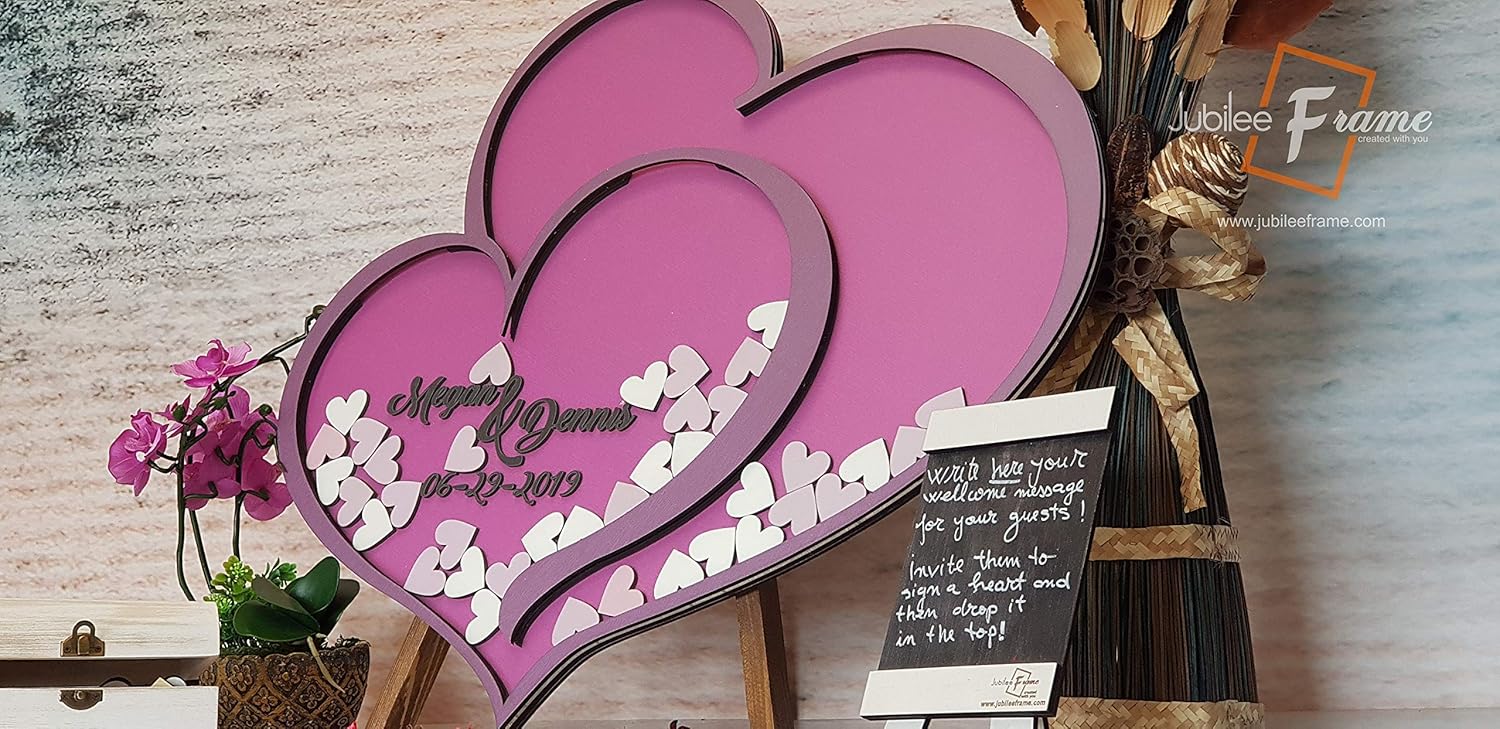 Jubilee Frame
created with you
www.jubileeframe.com
Megan & Dennis
06-29-2019
Write here your
wellcome message
for your guests!
invite them to
sign a heart and
then drop it
in the top!
Jubilee Frame
created with you
www.jubileeframe.com